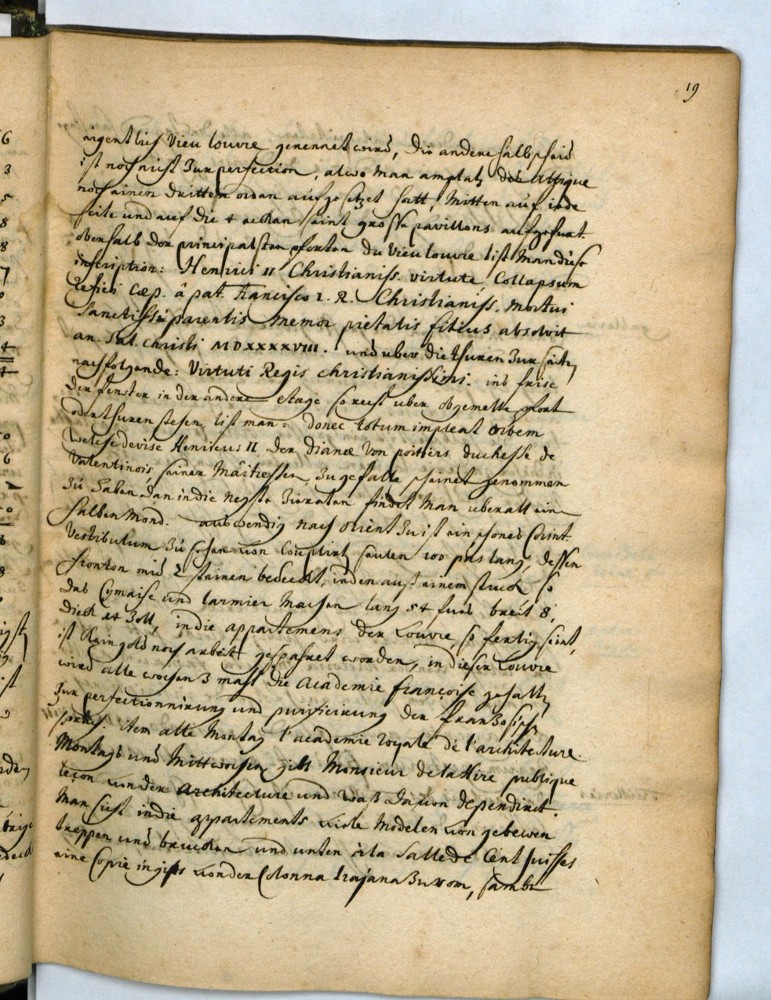 19
eigentlich Vieu louvre genennet wird, die andere halbscheid
ist noch nicht Zur perfection, alwo man anplatz des Attique
noch einen dritten orden aufgesetzet hatt, Mitten auf jede
seite und auf die 4 ecken seint grosse pavillons aufgefurt.
oberhalb der principalsten pforten du Vieu louvre list Man diese
inscription: Henrici II Christianiss. virtute, Collapsum
refici cœp. â pat. Francisco I. R. Christianiss. mortui
Sanctissi parentis memor pietatis filius absolvit
an. Sal. Christi MDXXXXVIII. und uber die thuren Zur seite
nachfolgende: Virtuti Regis christianissimi. ins frise
der fenster in der andere etage so recht uber obgemelte pfort
oder thuren stehen, list man: donec totum impleat orbem
welche devise Henricus II. der Dianæ von poitiers duchesse de
Valentinois, seiner Maitressen, Zu gefalle scheinet genommen
Zu haben, dan in die negste Zieraten findet Man uberall ein
halben Mond. auswendig nach orient Zu ist ein schones Corint.
Vestibulum Zu sehen von Couplirte seulen 100 pas lang, dessen
fronton mit 2 steinen bedeckt, jeder aus einem stuck so
das Cymaise und larmier Machen lang 54 fuss breit 8,
dick 14 Zoll, in die appartemens der Louvre so fertig seint,
ist kein gold noch arbeit gespahret worden, in dieser Louvre
wird alle wochen 3 mahl die Academie françoise gehalten
Zur perfectionnirung und purificirung der franzosischen
sprach item alle Montag l'academie royale de l'architecture
Montags und Mittwochen gibt Monsieur de la Hire publique
leçon von der Architecture und was davon dependiret.
Man siehet in die appartements viele Modelen von gebewen
treppen und brucken und unten in la Salle de Cent suisses
eine Copie in gips von der Colonna trajana Zu rom, sambt